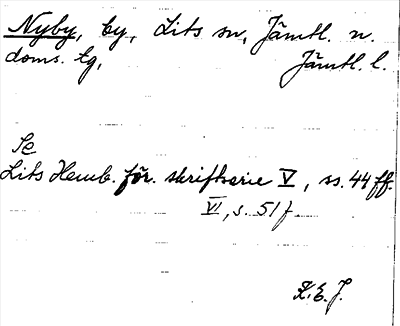 Nyby, by, Lits sn, Jämtl. n.
doms. tg, Jämtl. l.
Se
Lits Hemb. för. skriftserie V, ss. 44 ff.
VI, s. 51 f
K. E. J.